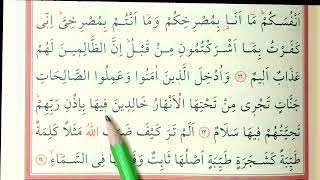 اَنْفُسَكُمْ مَٓا اَنَا۬ بِمُصْرِخِكُمْ وَمَٓا اَنْتُمْ بِمُصْرِخِيَّ اِنّٖى
كَفَرْتُ بِمَٓا اَشْرَكْتُمُونِ مِنْ قَبْلُ اِنَّ الظَّالِمٖينَ لَهُمْ
عَذَابٌ اَلٖيمٌ ﴿٢٢﴾ وَاُدْخِلَ الَّذٖينَ اٰمَنُوا وَعَمِلُوا الصَّالِحَاتِ
جَنَّاتٍ تَجْرٖى مِنْ تَحْتِهَا الْاَنْهَارُ خَالِدٖينَ فٖيهَا بِاِذْنِ رَبِّهِمْ
تَحِيَّتُهُمْ فٖيهَا سَلَامٌ ﴿٢٣﴾ اَلَمْ تَرَ كَيْفَ ضَرَبَ اللّٰهُ مَثَلًا كَلِمَةً
طَيِّبَةً كَشَجَرَةٍ طَيِّبَةٍ اَصْلُهَا ثَابِتٌ وَفَرْعُهَا فِى السَّمَٓاءِ ﴿٢٤﴾